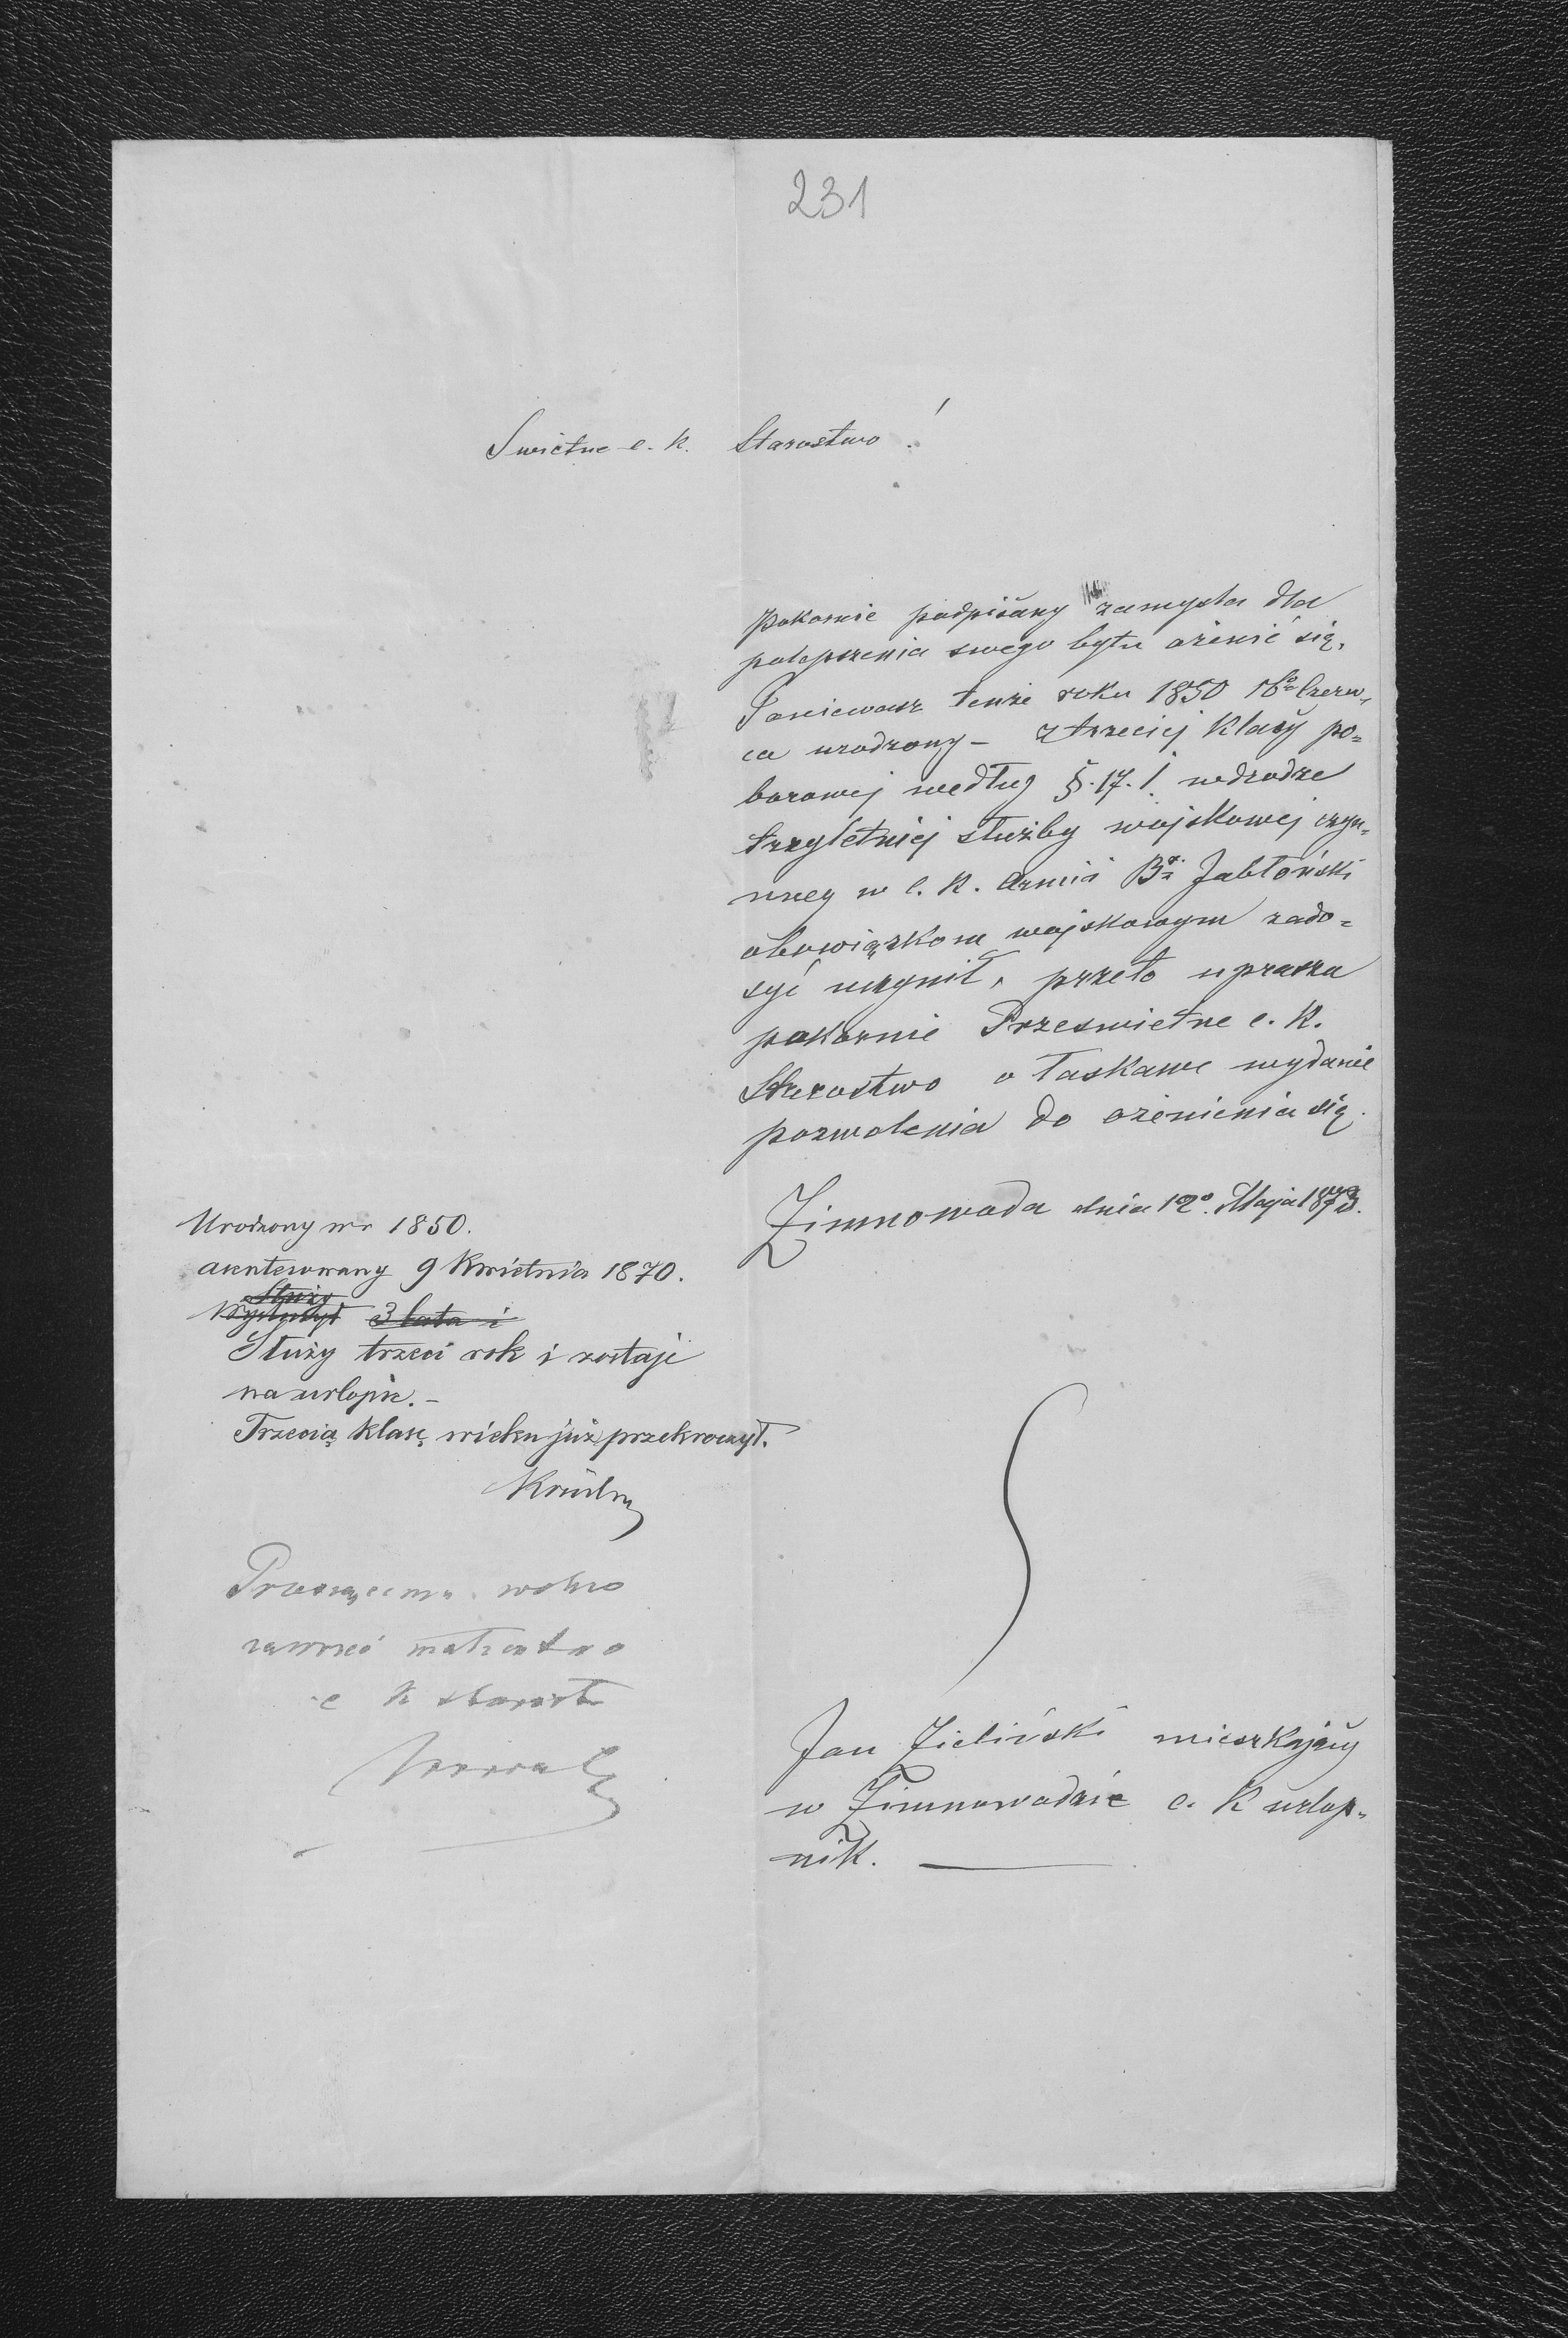 231
Swietne c. k. Starostwo!
Pokornie podpisany zamysla dla
polepszenia swego bytu ożenić się,
Poniewasz tenże roku 1850 Czerw,
ca urodzony – z trzeciej Klasy po=
borowej według §. 17. 1. wdrodze
trzyletniej służby wojskowej czyn,
nney w C. K. Armii Jabłoński
obowiązkom wojskowym zado=
syć uczynił, przeto uprasza
pokornie Przeswietne c. K.
Starostwo o łaskawe wydanie
pozwolenia do ożenienia się.
Zimnowoda dnia 12º. Maja 1873.
Jan Zieliński mieszkający
w Zimnowodzie c. K urlop,
nik.
Urodzony w r 1850.
asenterowany 9 Kwietnia 1870.
Służy
Wysłużył 3 lata i
Służy trzeci rok i zostaje
na urlopie. –
Trzecią klasę wieku już przekroczył.
wolno
zawrzeć
c k starosta